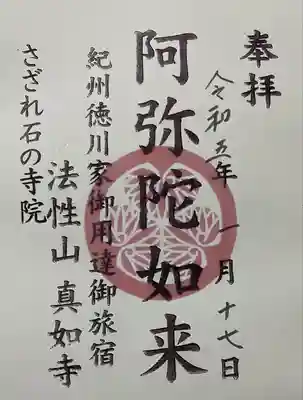 奉拝
令和五年 一月十七日
阿弥陀如来
紀州徳川家御用達御旅宿
法性山 真如寺
さざれ石の寺院